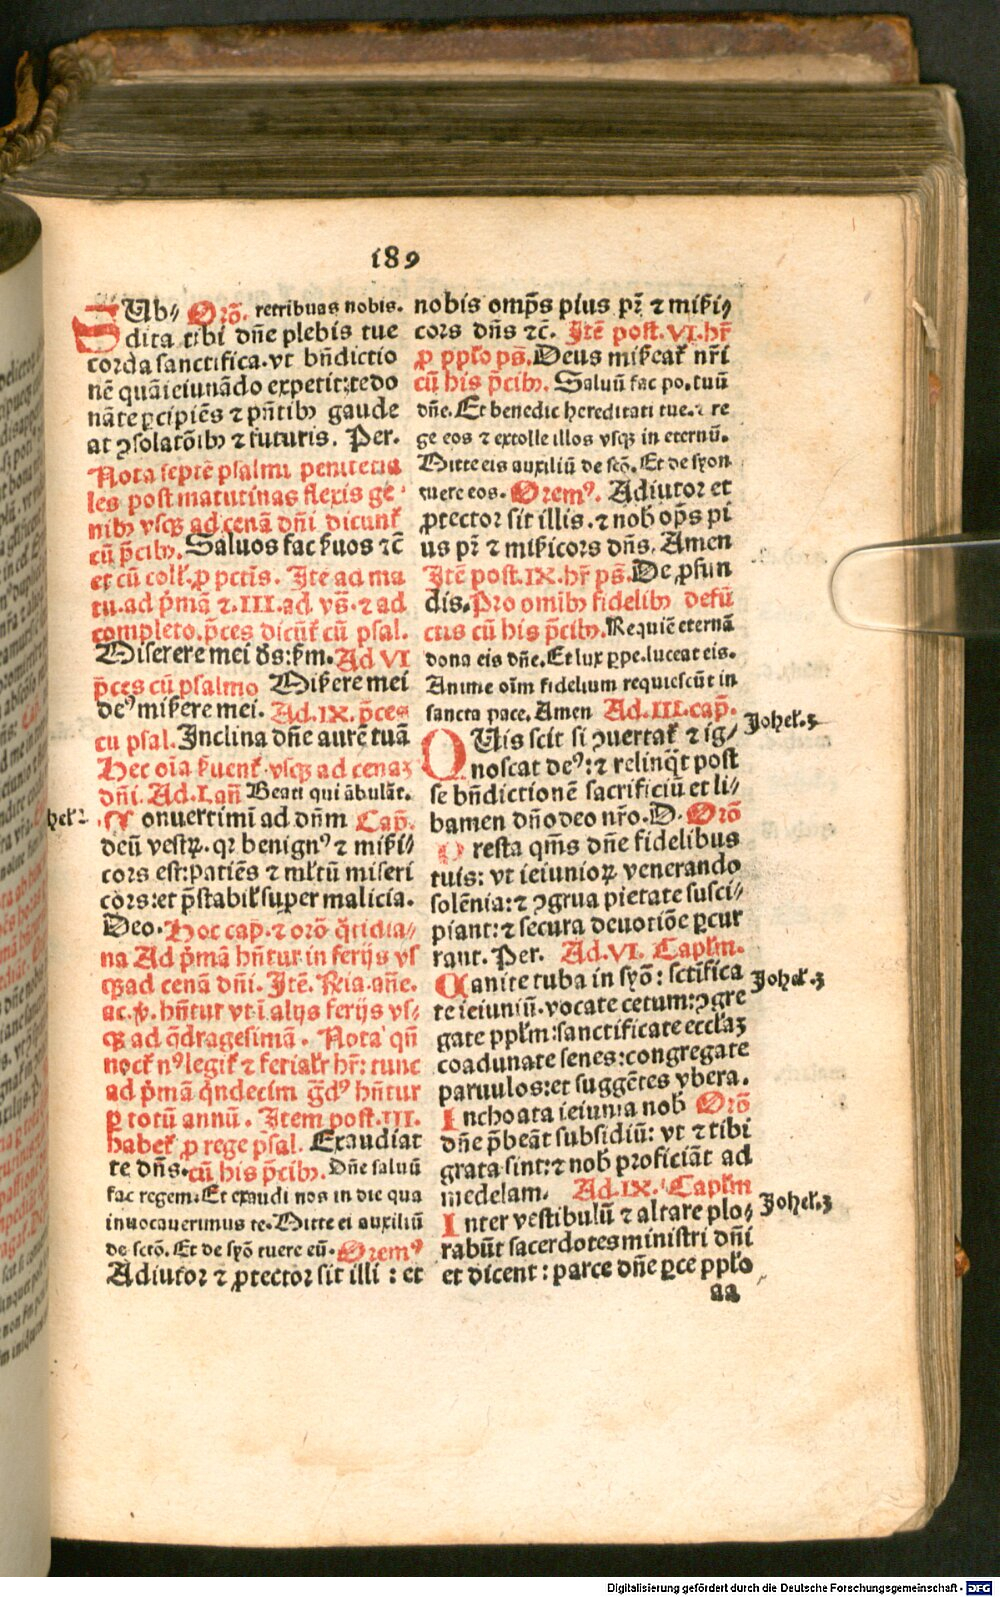 189
SUb⸗ Oro̅. retribuas nobis.
dita tibi dn̄e plebis tue
corda sanctifica.vt bn̄dictio
nē quā ieiunādo expetit:te do
nāte ꝑcipiēs ⁊ pn̄tibꝫ gaude
at ꝯsolatōibꝫ ⁊ futuris. Per.
Nota septē psalmi penitētia
les post matutinas flexis ge
nibꝫ vsqꝫ ad cenā dn̄i dicunt̄
cū p̄cibꝫ. Saluos fac ẜuos ⁊c̄
et cū coll̄. ꝓ pctīs. Itē ad ma
tu.ad p̄mā ⁊.III.ad vs̄.⁊ ad
completo.p̄ces dicūt̄ cū psal.
Miserere mei ds̄:ẜm. Ad VI
p̄ces cū psalmo Miẜere mei
deꝰ miẜere mei. Ad.IX. p̄ces
cū psal. Inclina dn̄e aurē tuā
Hec oīa ẜuent̄ vsqꝫ ad cenaꝫ
dn̄i. Ad.Lan̄ Beati qui ābulāt.
Conuertimi ad dn̄m Cap̄.
deū vestꝝ.qꝛ benignꝰ ⁊ miẜi⸗
cors est:patiēs ⁊ ml̄tū miseri
cors:et p̄stabil̄ super malicia.
Deo. Hoc cap̄. ⁊ orō q̄tidia⸗
na Ad p̄mā hn̄tur in ferijs vs
qꝫ ad cenā dn̄i. Itē. Ria.an̄e.
ac.v̄. hn̄tur vt ī alijs ferijs vs⸗
qꝫ ad q̄dragesimā. Nota qn̄
noct̄ nꝰ legit̄ ⁊ ferialr̄ hr̄: tunc
ad p̄mā q̄ndecim g̅dꝰ hn̄tur
ꝑ totū annū. Item post.III.
habet̄ ꝓ rege psal. Exaudiat
te dn̄s. cū his p̄cibꝫ. Dn̄e saluū
fac regem. Et exaudi nos in die qua
inuocauerimus te. Mitte ei auxiliū
de sctō. Et de syō tuere eū. Oremꝰ
Adiutor ⁊ ꝓtector sit illi : et
nobis omp̄s pius pr̄ ⁊ miẜi⸗
cors dn̄s ⁊c̄. Itē post.VI.hr̄
ꝓ pplo ps̄. Deus miẜeat̄ nr̄i
cū his p̄cibꝫ. Saluū fac po.tuū
dn̄e. Et benedic hereditati tue. ⁊ re
ge eos ⁊ extolle illos vsqꝫ in eternū.
Mitte eis auxiliū de sctō. Et de syon
tuere eos. Oremꝰ. Adiutor et
ꝓtector sit illis.⁊ nob op̄s pi
us pr̄ ⁊ miẜicors dn̄s. Amen
Itē post.IX.hr̄ ps̄. De ꝓfun
dis. Pro omībꝫ fidelibꝫ defū
ctis cū his p̄cibꝫ. Requiē eternā
dona eis dn̄e. Et lux ꝑpe.luceat eis.
Anime oīm fidelium requiescūt in
sancta pace. Amen Ad.III.cap̄.
QUis scit si ꝯuertat̄ ⁊ ig⸗
noscat deꝰ:⁊ relinq̄t post
se bn̄dictionē sacrificiū et li⸗
bamen dn̄o deo nr̄o. D. Orō
Presta qm̄s dn̄e fidelibus
tuis: vt ieiunioꝝ venerando
solēnia:⁊ ꝯgrua pietate susci⸗
piant:⁊ secura deuotiōe ꝑcur
rant. Per. Ad.VI. Capl̄m.
Canite tuba in syō: sctīfica
te ieiuniū.vocate cetum:ꝯgre
gate ppl̄m:sanctificate eccl̄aꝫ
coadunate senes:congregate
paruulos:et suggētes vbera.
Inchoata ieiunia nob Orō
dn̄e p̄beāt subsidiū: vt ⁊ tibi
grata sint:⁊ nob proficiāt ad
medelam. Ad.IX. Capl̄m
Inter vestibulū ⁊ altare plo⸗
rabūt sacerdotes ministri dn̄i
et dicent : parce dn̄e ꝑce pplo
aa
Johel.3
Johel.3
Johel.3
hel.2